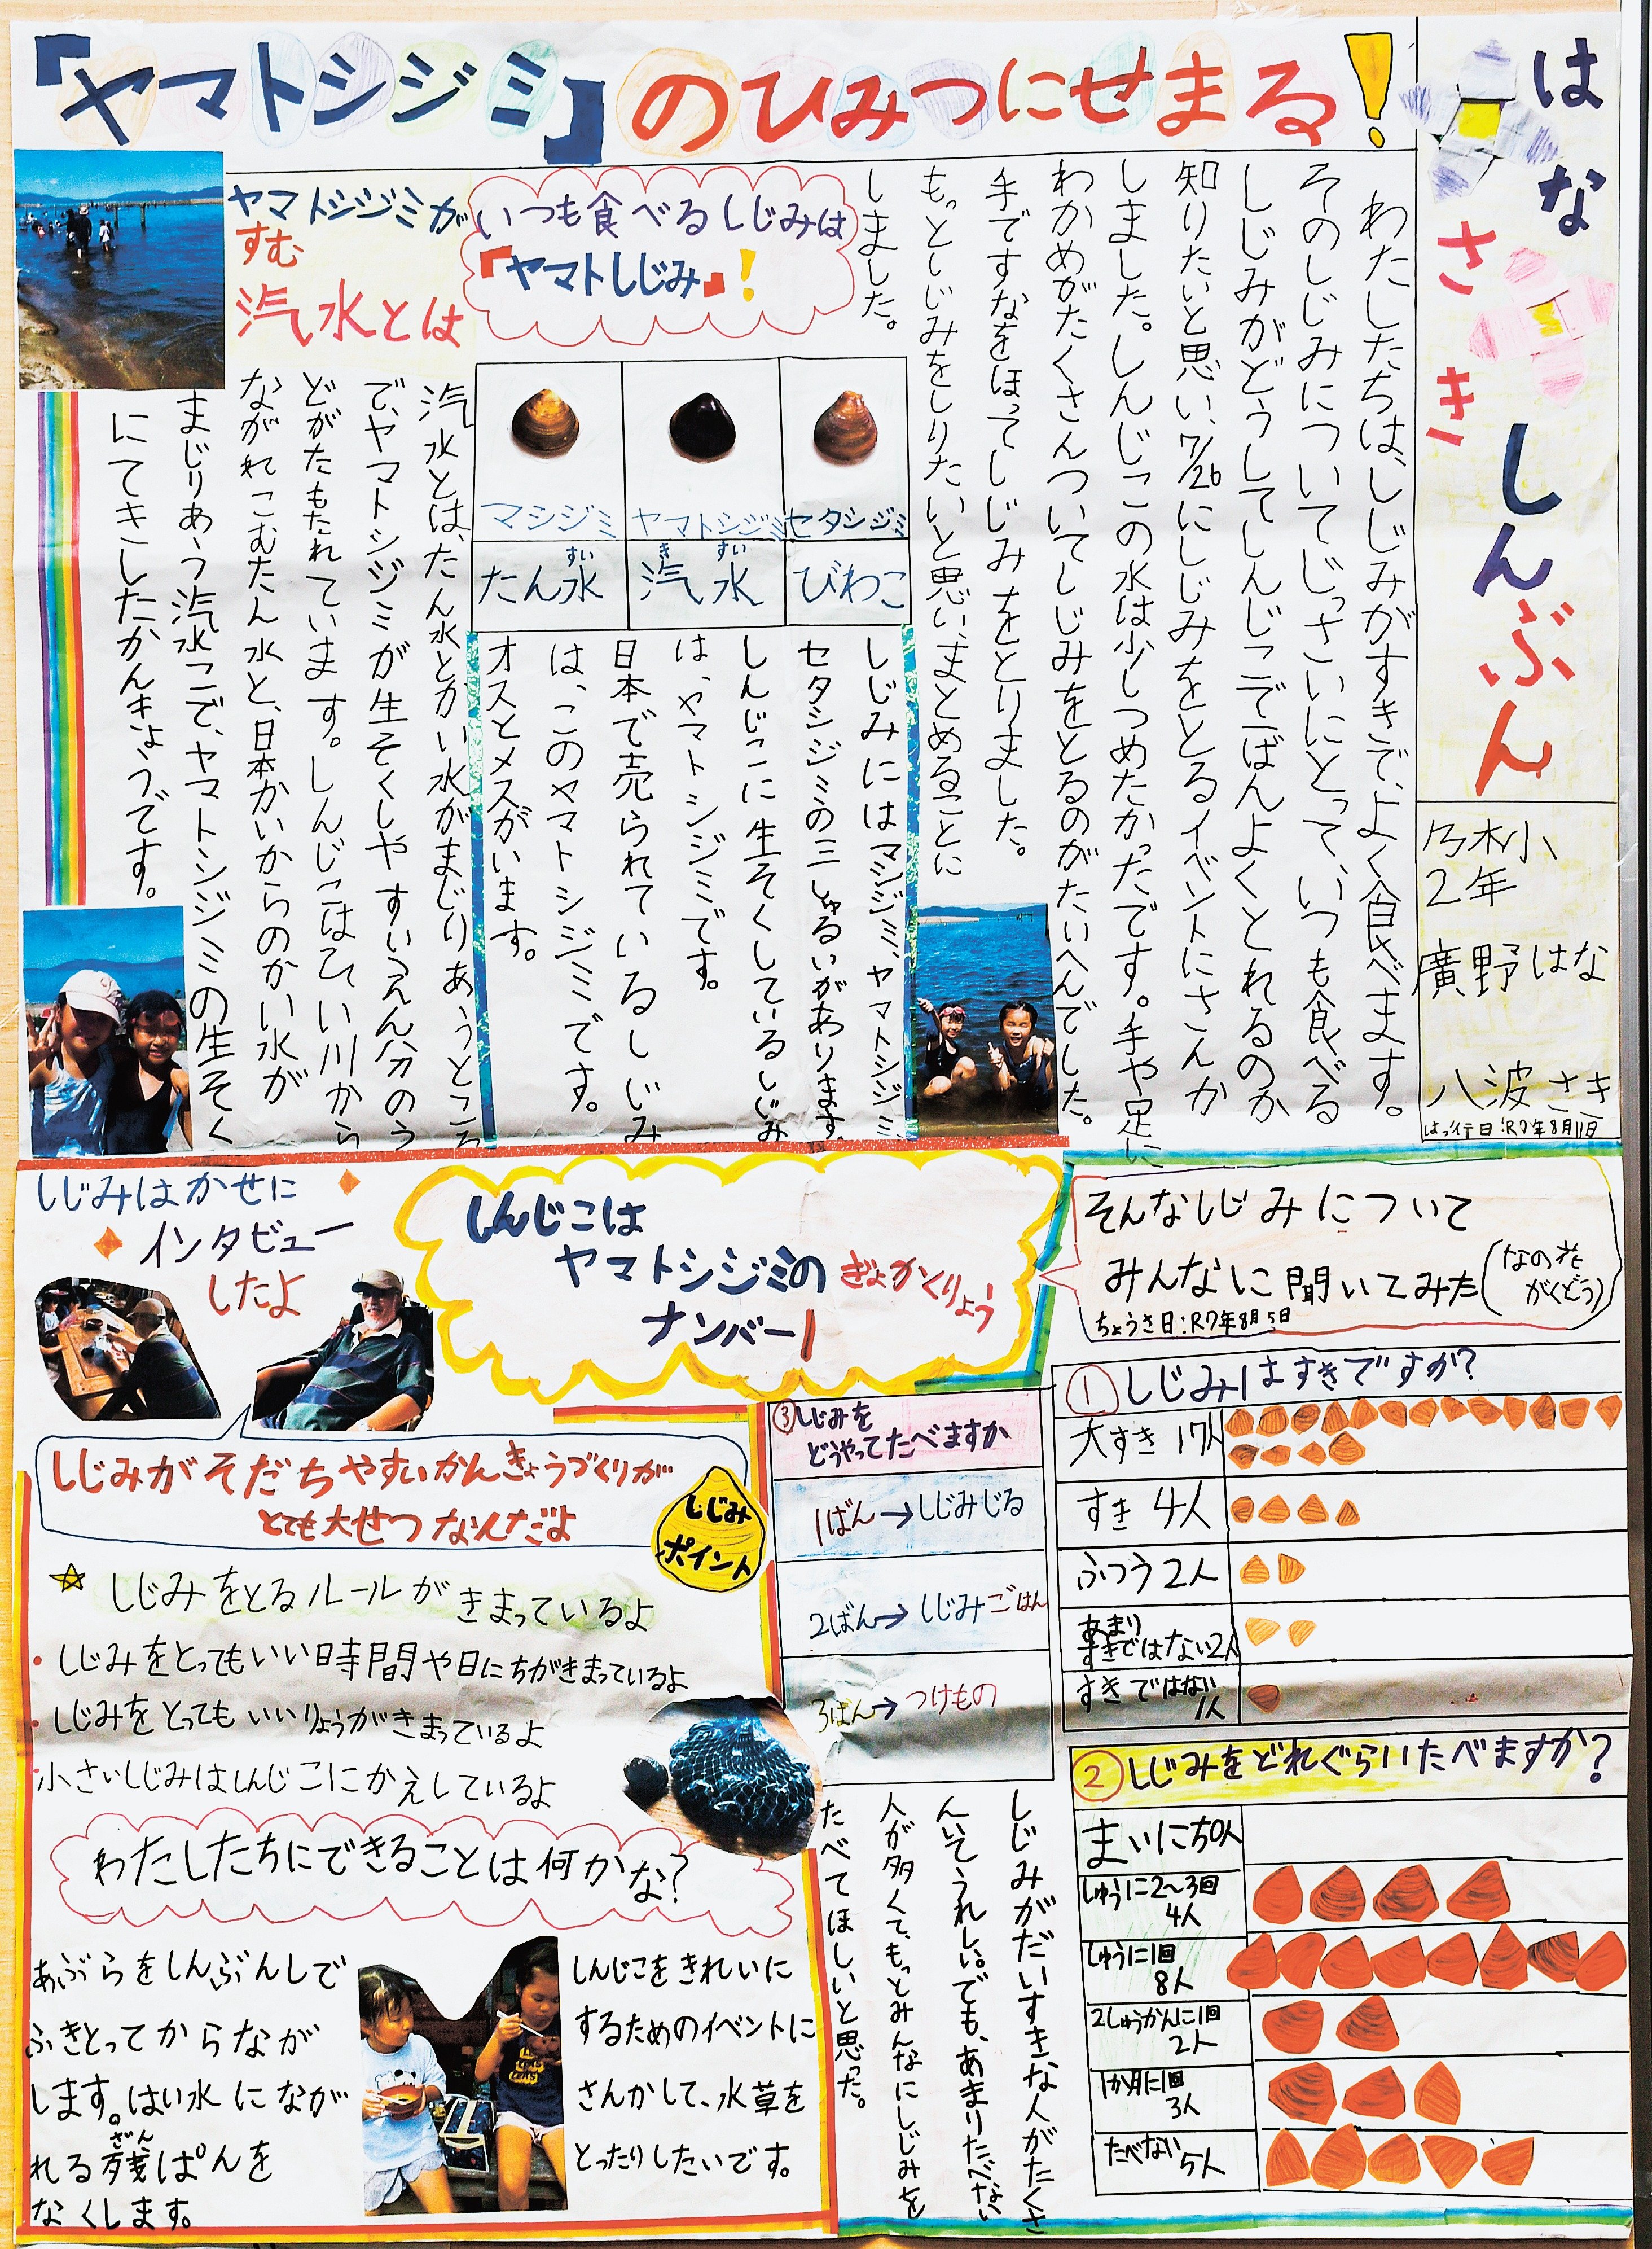 「ヤマトシジミ」のひみつにせまる!
はなさきしんぶん
乃木小
2年
廣野はな
八波さき
はっ行日:R7年8月11日
わたしたちは、しじみがすきで、よく食べます。
そのしじみについてじっさいにとって、いつも食べる
しじみがどうしてしんじこで一ばんよくとれるのか
知りたいと思い、7/26にしじみをとるイベントにさんか
しました。しんじこの水は少しつめたかったです。手や足に
わかめがたくさんついてしじみをとるのがたいへんでした。
手ですなをほってしじみをとりました。
もっとしじみをしりたいと思い、まとめることに
しました。
いつも食べるしじみは
「ヤマトしじみ」!
マシジミ
ヤマトシジミ
セタシジミ
たん水
すい
汽水
き すい
びわこ
しじみにはマシジミ、ヤマトシジミ、
セタシジミの三しゅるいがあります。
しんじこに生そくしているしじみ
は、ヤマトシジミです。
日本で売られているしじみ
は、このヤマトシジミです。
オスとメスがいます。
ヤマトシジミが
すむ
汽水とは
汽水とは、たん水とかい水がまじりあうところ
で、ヤマトシジミが生そくしやすいえん分のう
どがたもたれています。しんじこはひい川から
ながれこむたん水と、日本かいからのかい水が
まじりあう汽水こで、ヤマトシジミの生そく
にてきしたかんきょうです。
しじみはかせに
インタビュー
したよ
しじみがそだちやすいかんきょうづくりが
とても大せつなんだよ
しじみ
ポイント
しじみをとるルールがきまっているよ
・しじみをとってもいい時間や日にちがきまっているよ
・しじみをとってもいいりょうがきまっているよ
・小さいしじみはしんじこにかえしているよ
わたしたちにできることは何かな?
あぶらをしんぶんしで
ふきとってからなが
します。はい水になが
れる残ぱんを
ざん
なくします。
しんじこをきれいに
するためのイベントに
さんかして、水草を
とったりしたいです。
しんじこは
ヤマトシジミのぎょかくりょう
ナンバー1
そんなしじみについて
みんなに聞いてみた(なの花がくどう)
ちょうさ日:R7年8月5日
①しじみはすきですか?
大すき 17人
すき 4人
ふつう 2人
あまり
すきではない2人
すきではない
1人
②しじみをどれぐらいたべますか?
まいにち0人
しゅうに2〜3回
4人
しゅうに1回
8人
2しゅうかんに1回
2人
1か月に1回
3人
たべない
5人
③しじみを
どうやってたべますか
1ばん→しじみじる
2ばん→しじみごはん
3ばん→つけもの
しじみがだいすきな人がたくさ
んいてうれしい。でも、あまりたべない
人が多くて、もっとみんなにしじみを
たべてほしいと思った。